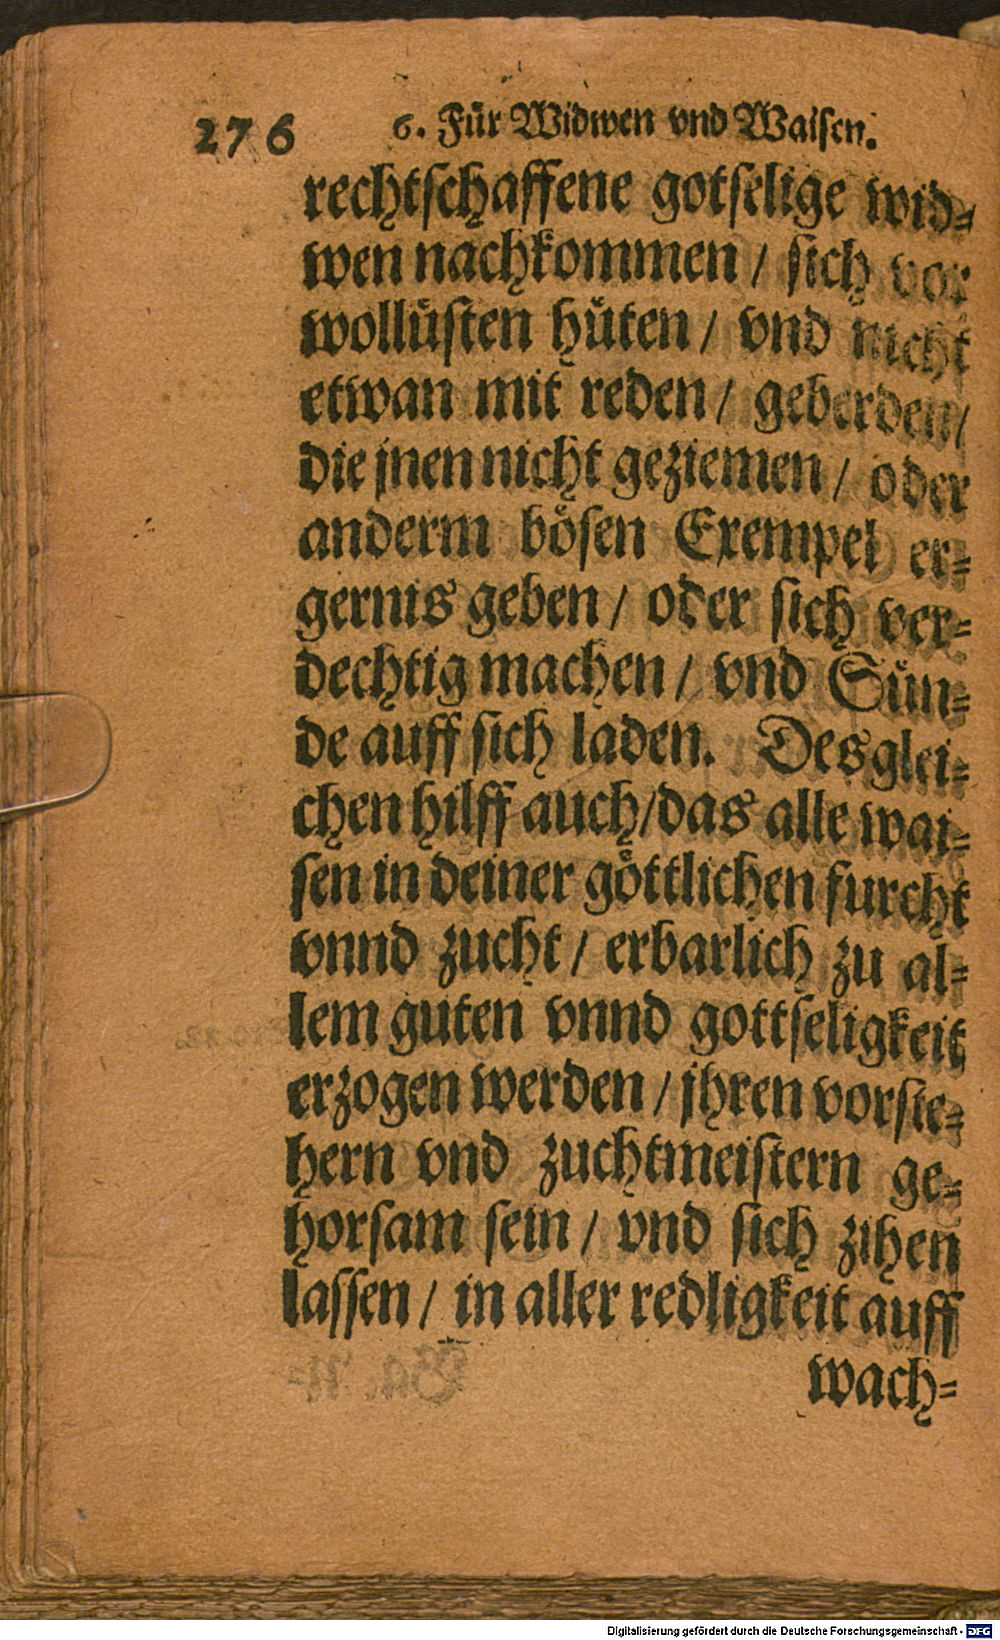 276 6. Für Widwen vnd Waisen.
rechtschaffene gotselige wid-
wen nachkommen / sich vor
wollüsten hüten / vnd nicht
etwan mit reden / geberden /
die jnen nicht geziemen / oder
anderm bösen Exempel er-
gernis geben / oder sich ver-
dechtig machen / vnd Sün-
de auff sich laden. Desglei-
chen hilff auch / das alle wai-
sen in deiner göttlichen furcht
vnnd zucht / erbarlich zu al-
lem guten vnnd gottseligkeit
erzogen werden / jhren vorste-
hern vnd zuchtmeistern ge-
horsam sein / vnd sich zihen
lassen / in aller redligkeit auff
wach-
Digitalisierung gefördert durch die Deutsche Forschungsgemeinschaft - DFG